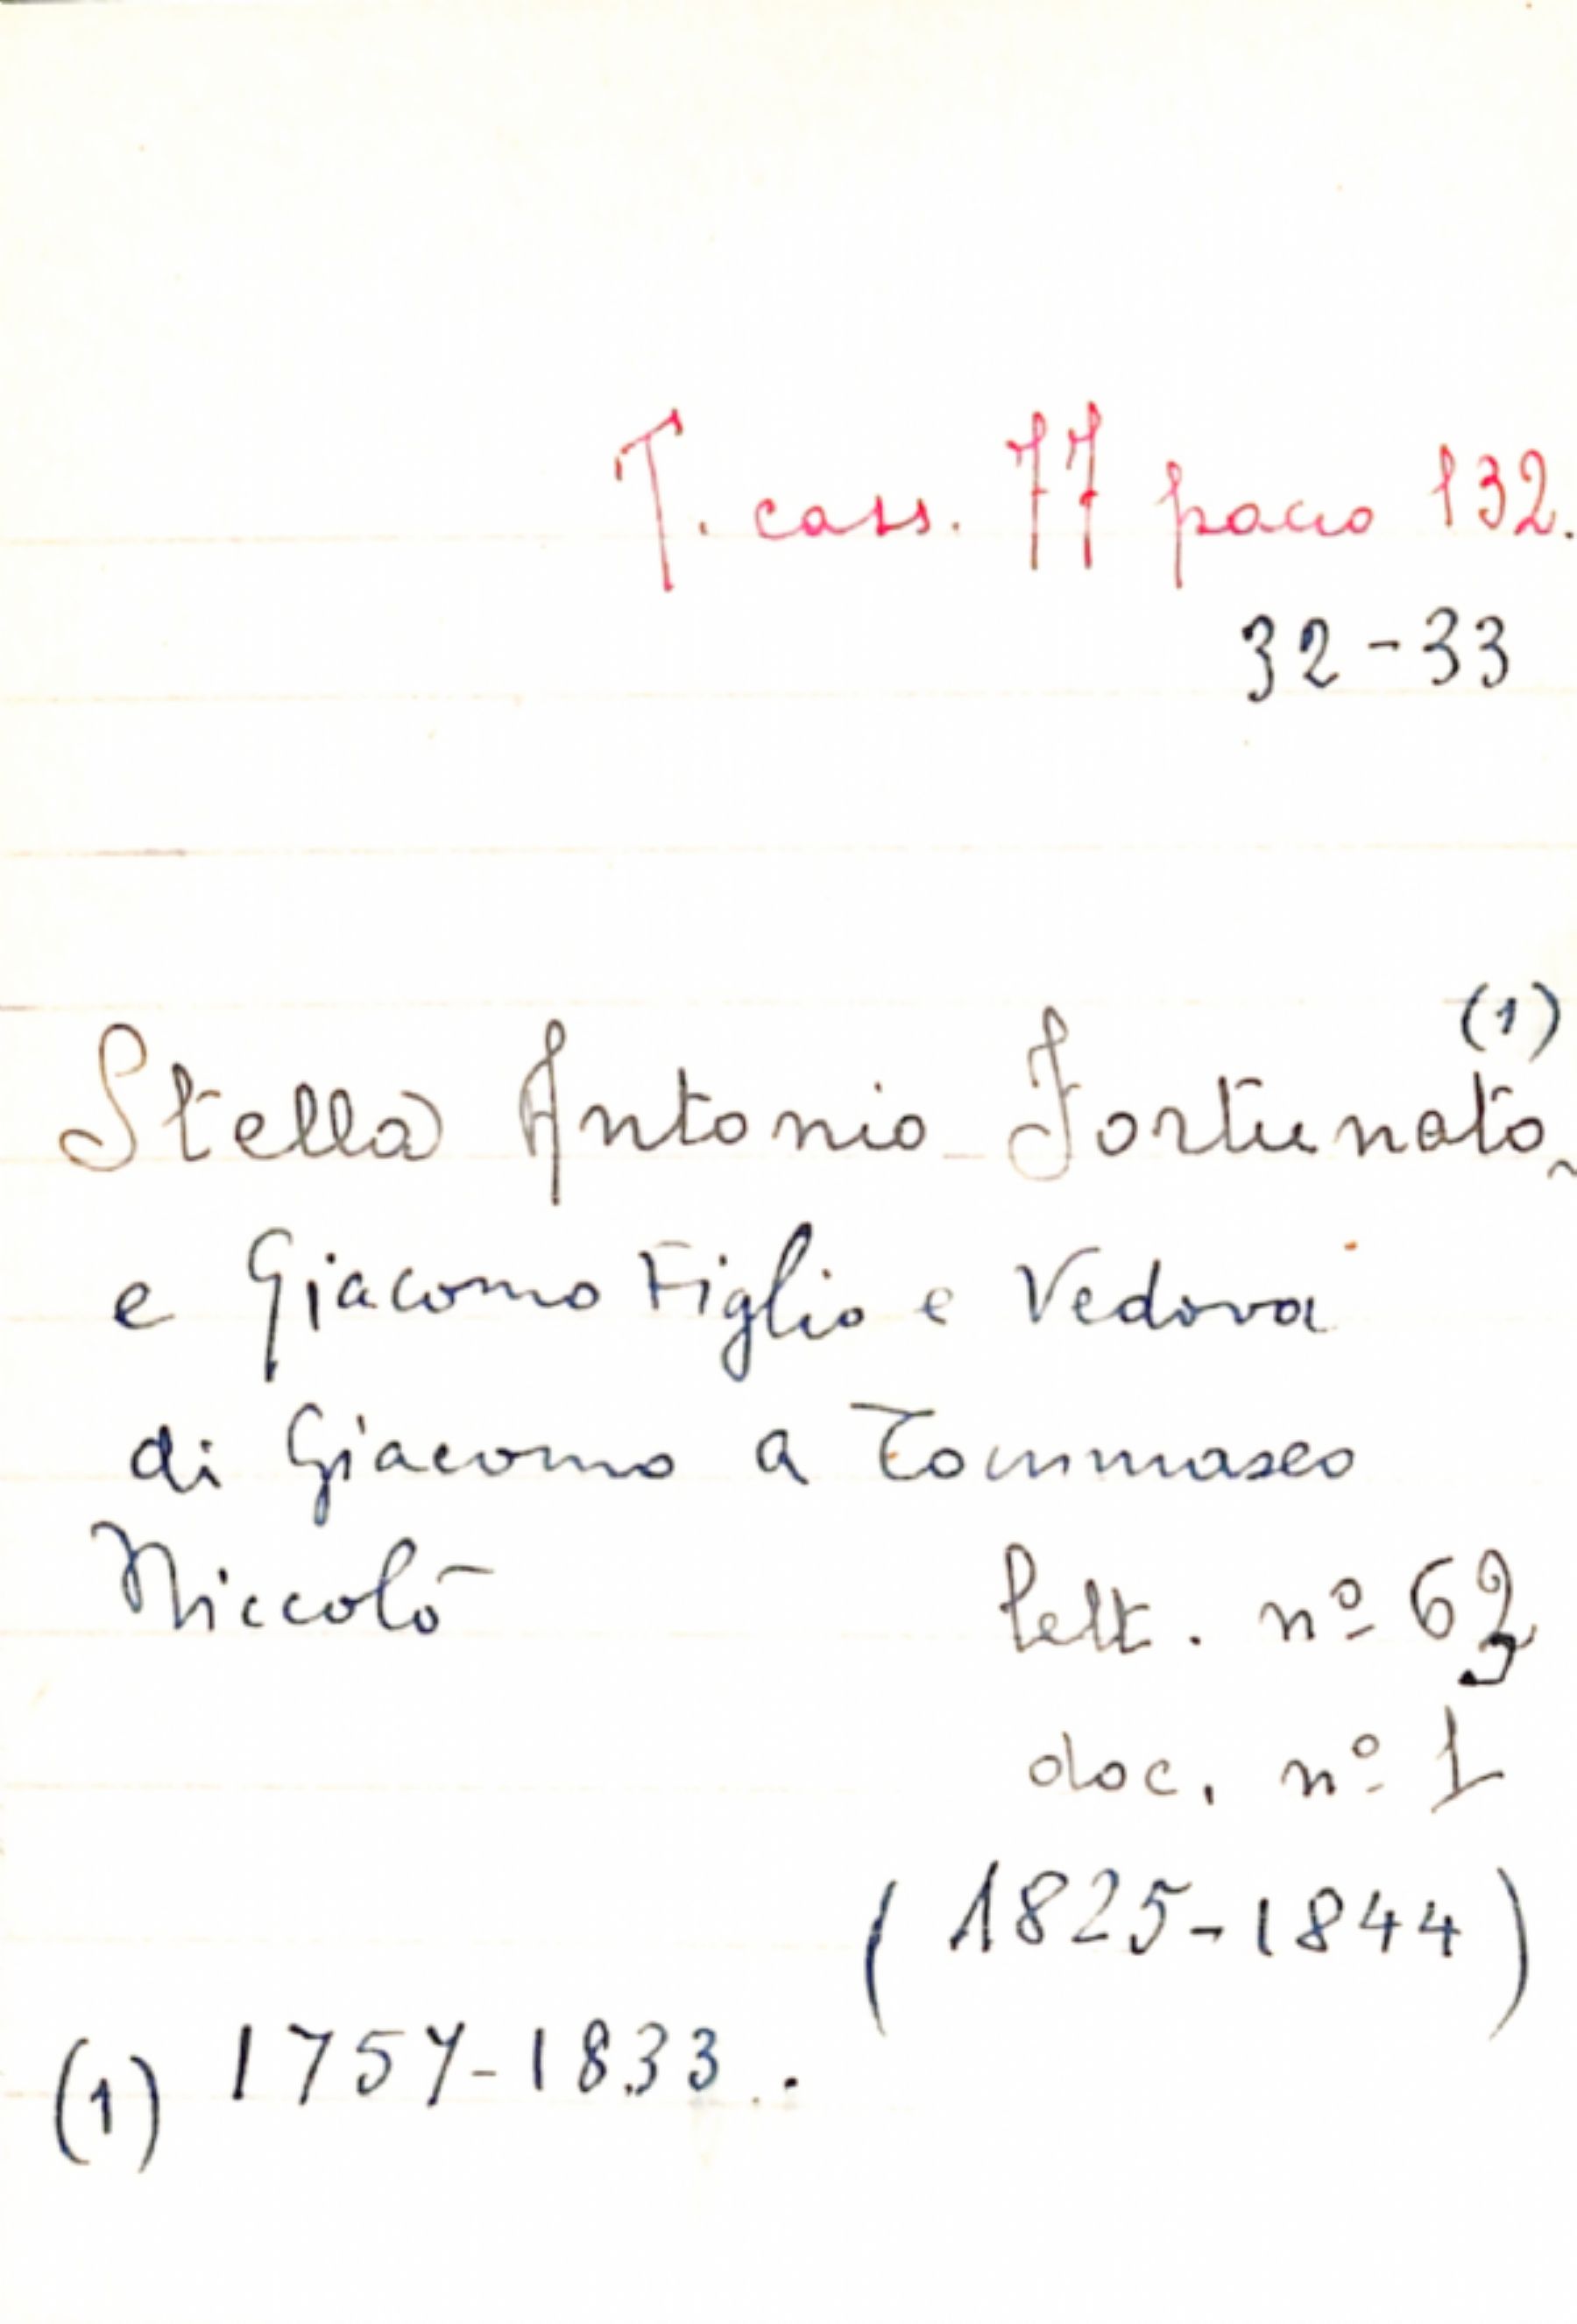 T. cass. 77 pacco 132.
32-33
(1)
Stella Antonio Fortunato
e Giacomo Figlio e Vedova
di Giacomo a Tommaseo
Niccolò lett. nº 63
doc. nº 1
(1825-1844)
(1) 1757-1833.